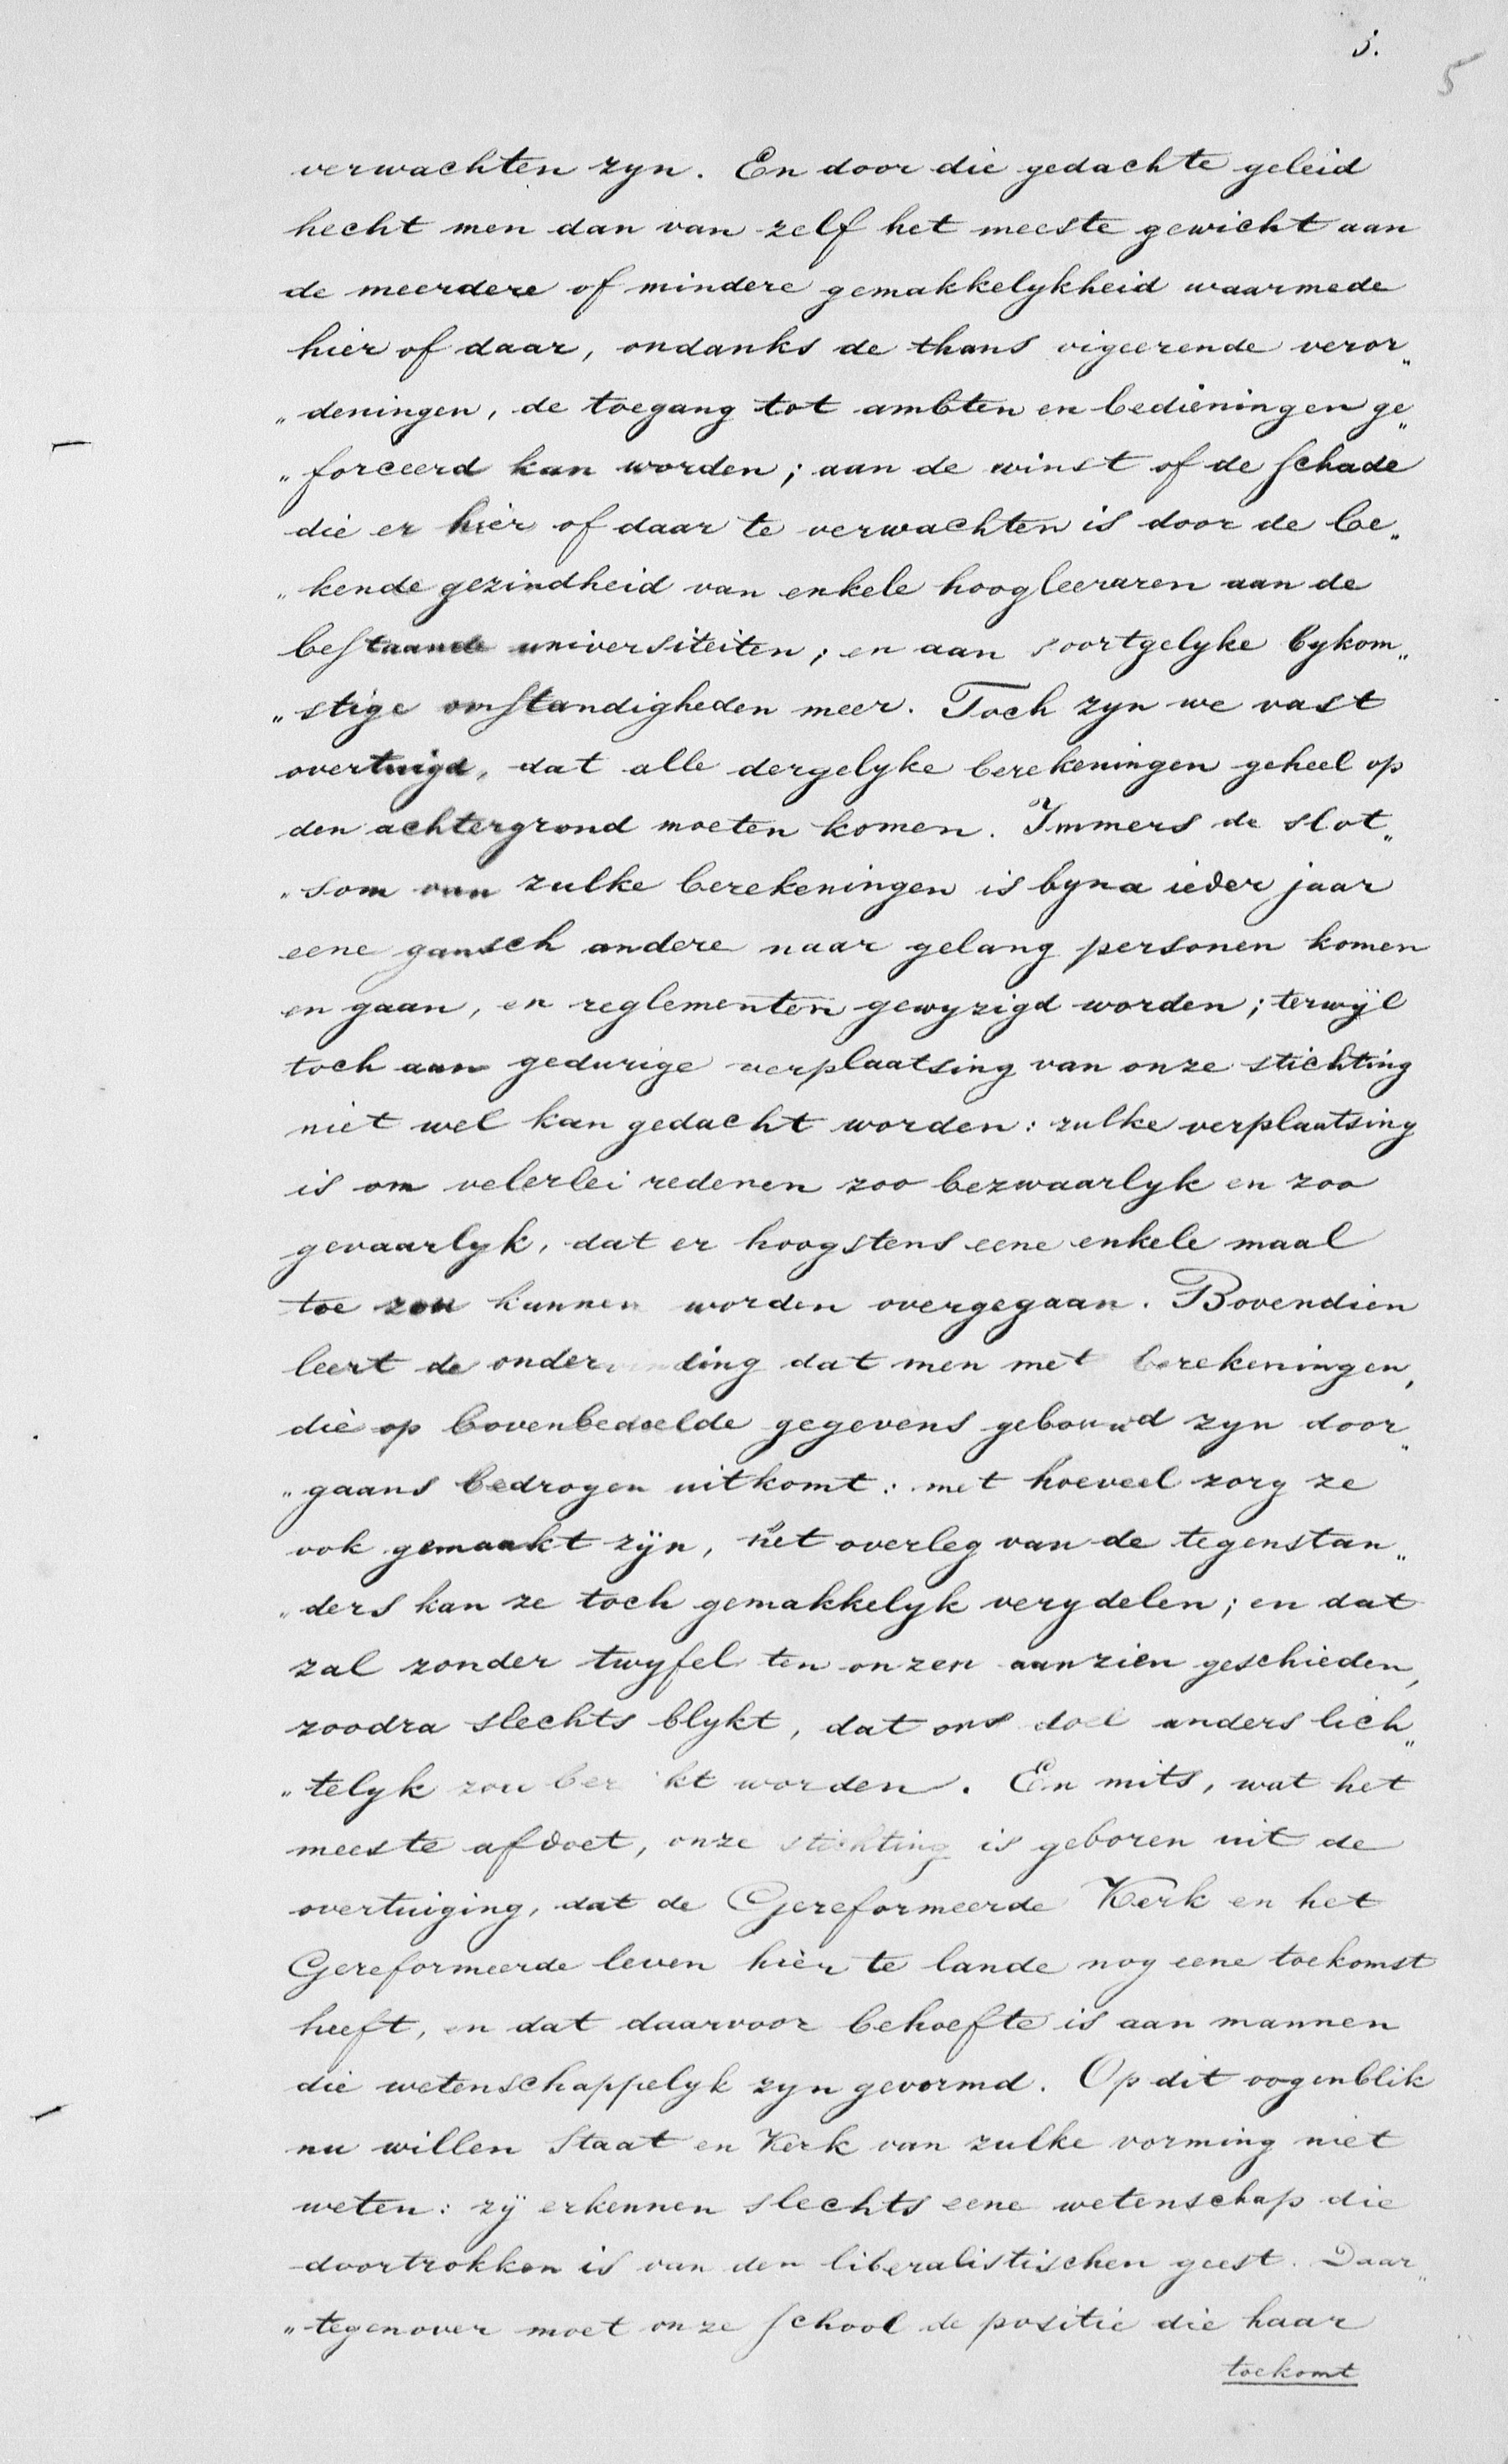 5.
5
verwachten zyn. En door die gedachte geleid
hecht men dan van zelf het meeste gewicht aan
de meerdere of mindere gemakkelykheid waarmede
hier of daar, ondanks de thans vigeerende veror„
„deningen, de toegang tot ambten en bedieningen ge„
„forceerd kan worden; aan de winst of de schade
die er hier of daar te verwachten is door de be„
„kende gezindheid van enkele hoogleeraren aan de
bestaande universiteiten; en aan soortgelyke bykom„
„stige omstandigheden meer. Toch zyn we vast
overtuigd, dat alle dergelyke berekeningen geheel op
den achtergrond moeten komen. Immers de slot„
„som van zulke berekeningen is byna ieder jaar
eene gansch andere naar gelang personen komen
en gaan, en reglementen gewyzigd worden; terwÿl
toch aan gedurige verplaatsing van onze stichting
niet wel kan gedacht worden: zulke verplaatsing
is om velerlei redenen zoo bezwaarlyk en zoo
gevaarlyk, dat er hoogstens eene enkele maal
toe zou kunnen worden overgegaan. Bovendien
leert de ondervinding dat men met berekeningen,
die op bovenbedoelde gegevens gebouwd zyn door„
„gaans bedrogen uitkomt: met hoeveel zorg ze
ook gemaakt zÿn, het overleg van de tegenstan„
„ders kan ze toch gemakkelyk verydelen; en dat
zal zonder twyfel ten onzen aanzien geschieden,
zoodra slechts blykt, dat ons doel anders lich„
„telyk zou bereikt worden. En mits, wat het
meeste afdoet, onze stichting is geboren uit de
overtuiging, dat de Gereformeerde Kerk en het
Gereformeerde leven hier te lande nog eene toekomst
heeft, en dat daarvoor behoefte is aan mannen
die wetenschappelyk zyn gevormd. Op dit oogenblik
nu willen Staat en Kerk van zulke vorming niet
weten: zÿ erkennen slechts eene wetenschap die
doortrokken is van den liberalistischen geest. Daar„
„tegenover moet onze school de positie die haar
toekomt